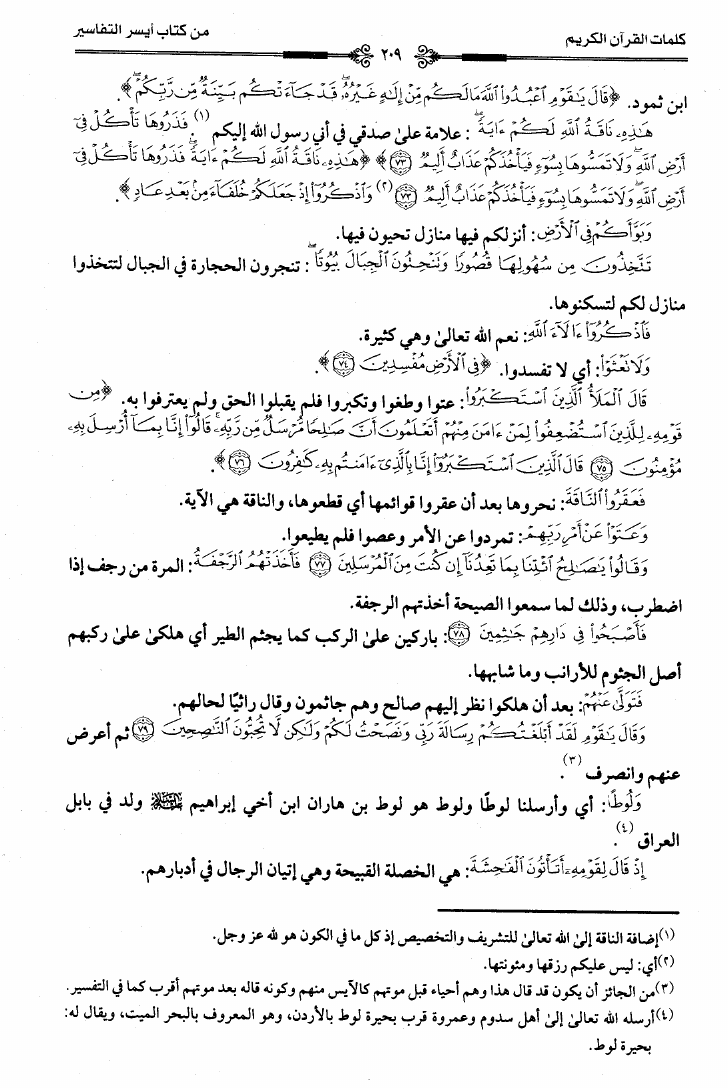 كلمات القرآن الكريم
٢٠٩
من كتاب أيسر التفاسير
ابن ثمود. ﴿قَالَ يَٰقَوْمِ ٱعْبُدُوا۟ ٱللَّهَ مَا لَكُم مِّنْ إِلَٰهٍ غَيْرُهُۥ ۖ قَدْ جَآءَتْكُم بَيِّنَةٌ مِّن رَّبِّكُمْ ۖ﴾.
هَٰذِهِۦ نَاقَةُ ٱللَّهِ لَكُمْ ءَايَةً ۖ: علامة علىٰ صدقي في أني رسول الله إليكم (١). فَذَرُوهَا تَأْكُلْ فِىٓ
أَرْضِ ٱللَّهِ ۖ وَلَا تَمَسُّوهَا بِسُوٓءٍ فَيَأْخُذَكُمْ عَذَابٌ أَلِيمٌ ﴿٧٣﴾﴾ ﴿هَٰذِهِۦ نَاقَةُ ٱللَّهِ لَكُمْ ءَايَةً ۖ فَذَرُوهَا تَأْكُلْ فِىٓ
أَرْضِ ٱللَّهِ ۖ وَلَا تَمَسُّوهَا بِسُوٓءٍ فَيَأْخُذَكُمْ عَذَابٌ أَلِيمٌ ﴿٧٣﴾ (٢) وَٱذْكُرُوٓا۟ إِذْ جَعَلَكُمْ خُلَفَآءَ مِنۢ بَعْدِ عَادٍ﴾.
وَبَوَّأَكُمْ فِى ٱلْأَرْضِ: أنزلكم فيها منازل تحيون فيها.
تَتَّخِذُونَ مِن سُهُولِهَا قُصُورًا وَتَنْحِتُونَ ٱلْجِبَالَ بُيُوتًا ۖ: تنجرون الحجارة في الجبال لتتخذوا
منازل لكم لتسكنوها.
فَٱذْكُرُوٓا۟ ءَالَآءَ ٱللَّهِ: نعم الله تعالىٰ وهي كثيرة.
وَلَا تَعْثَوْا۟: أي لا تفسدوا. ﴿فِى ٱلْأَرْضِ مُفْسِدِينَ ﴿٧٤﴾﴾.
قَالَ ٱلْمَلَأُ ٱلَّذِينَ ٱسْتَكْبَرُوا۟: عتوا وطغوا وتكبروا فلم يقبلوا الحق ولم يعترفوا به. ﴿مِن
قَوْمِهِۦ لِلَّذِينَ ٱسْتُضْعِفُوا۟ لِمَنْ ءَامَنَ مِنْهُمْ أَتَعْلَمُونَ أَنَّ صَٰلِحًا مُّرْسَلٌ مِّن رَّبِّهِۦ ۚ قَالُوٓا۟ إِنَّا بِمَآ أُرْسِلَ بِهِۦ
مُؤْمِنُونَ ﴿٧٥﴾ قَالَ ٱلَّذِينَ ٱسْتَكْبَرُوٓا۟ إِنَّا بِٱلَّذِىٓ ءَامَنتُم بِهِۦ كَٰفِرُونَ ﴿٧٦﴾﴾.
فَعَقَرُوا۟ ٱلنَّاقَةَ: نحروها بعد أن عقروا قوائمها أي قطعوها، والناقة هي الآية.
وَعَتَوْا۟ عَنْ أَمْرِ رَبِّهِمْ: تمردوا عن الأمر وعصوا فلم يطيعوا.
وَقَالُوا۟ يَٰصَٰلِحُ ٱئْتِنَا بِمَا تَعِدُنَآ إِن كُنتَ مِنَ ٱلْمُرْسَلِينَ ﴿٧٧﴾ فَأَخَذَتْهُمُ ٱلرَّجْفَةُ: المرة من رجف إذا
اضطرب، وذلك لما سمعوا الصيحة أخذتهم الرجفة.
فَأَصْبَحُوا۟ فِى دَارِهِمْ جَٰثِمِينَ ﴿٧٨﴾: باركين علىٰ الركب كما يجثم الطير أي هلكىٰ علىٰ ركبهم
أصل الجثوم للأرانب وما شابهها.
فَتَوَلَّىٰ عَنْهُمْ: بعد أن هلكوا نظر إليهم صالح وهم جاثمون وقال راثيًا لحالهم.
وَقَالَ يَٰقَوْمِ لَقَدْ أَبْلَغْتُكُمْ رِسَالَةَ رَبِّى وَنَصَحْتُ لَكُمْ وَلَٰكِن لَّا تُحِبُّونَ ٱلنَّٰصِحِينَ ﴿٧٩﴾ ثم أعرض
عنهم وانصرف (٣).
وَلُوطًا: أي وأرسلنا لوطًا ولوط هو لوط بن هاران ابن أخي إبراهيم ولد في بابل
العراق (٤).
إِذْ قَالَ لِقَوْمِهِۦٓ أَتَأْتُونَ ٱلْفَٰحِشَةَ: هي الخصلة القبيحة وهي إتيان الرجال في أدبارهم.
(١) إضافة الناقة إلىٰ الله تعالىٰ للتشريف والتخصيص إذ كل ما في الكون هو لله عز وجل.
(٢) أي: ليس عليكم رزقها ومئونتها.
(٣) من الجائز أن يكون قد قال هذا وهم أحياء قبل موتهم كالآيس منهم وكونه قاله بعد موتهم أقرب كما في التفسير.
(٤) أرسله الله تعالىٰ إلىٰ أهل سدوم وعمروة قرب بحيرة لوط بالأردن، وهو المعروف بالبحر الميت، ويقال له:
بحيرة لوط.